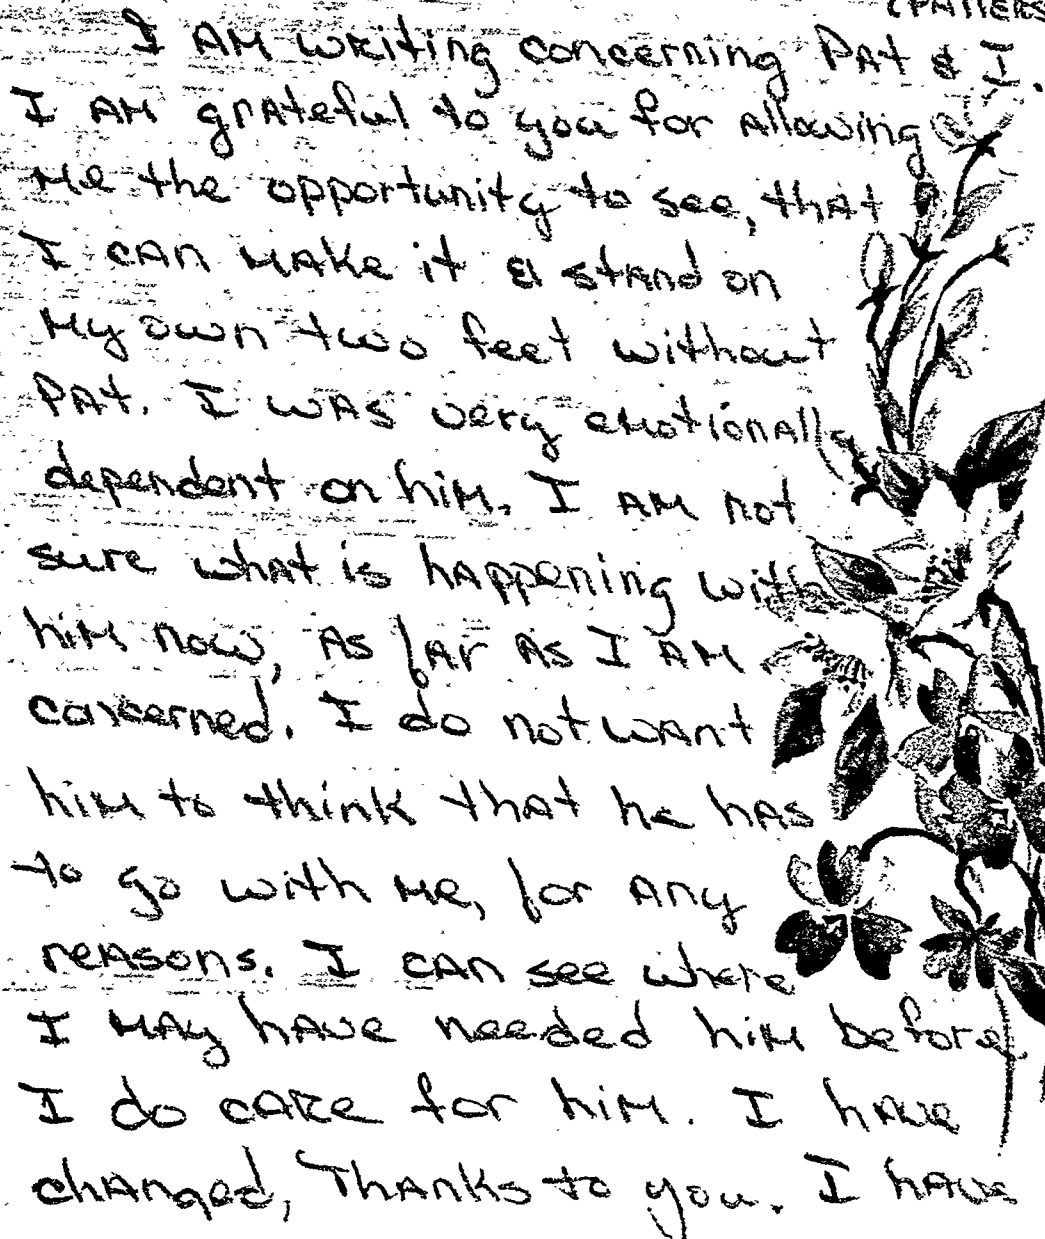 I AM writing concerning PAt & I.
I AM grAteful to you for Allowing
Me the opportunity to see, thAt
I cAn MAke it & stAnd on
My own two feet without
PAt. I wAs very eMotionAlly
dependent on hiM. I AM not
sure whAt is hAppening with
hiM now, As fAr As I AM
concerned. I do not wAnt
hiM to think thAt he hAs
to go with Me, for Any
reAsons. I cAn see where
I MAy hAve needed hiM before
I do cAre for hiM. I hAve
chAnged, ThAnks to you. I hAve